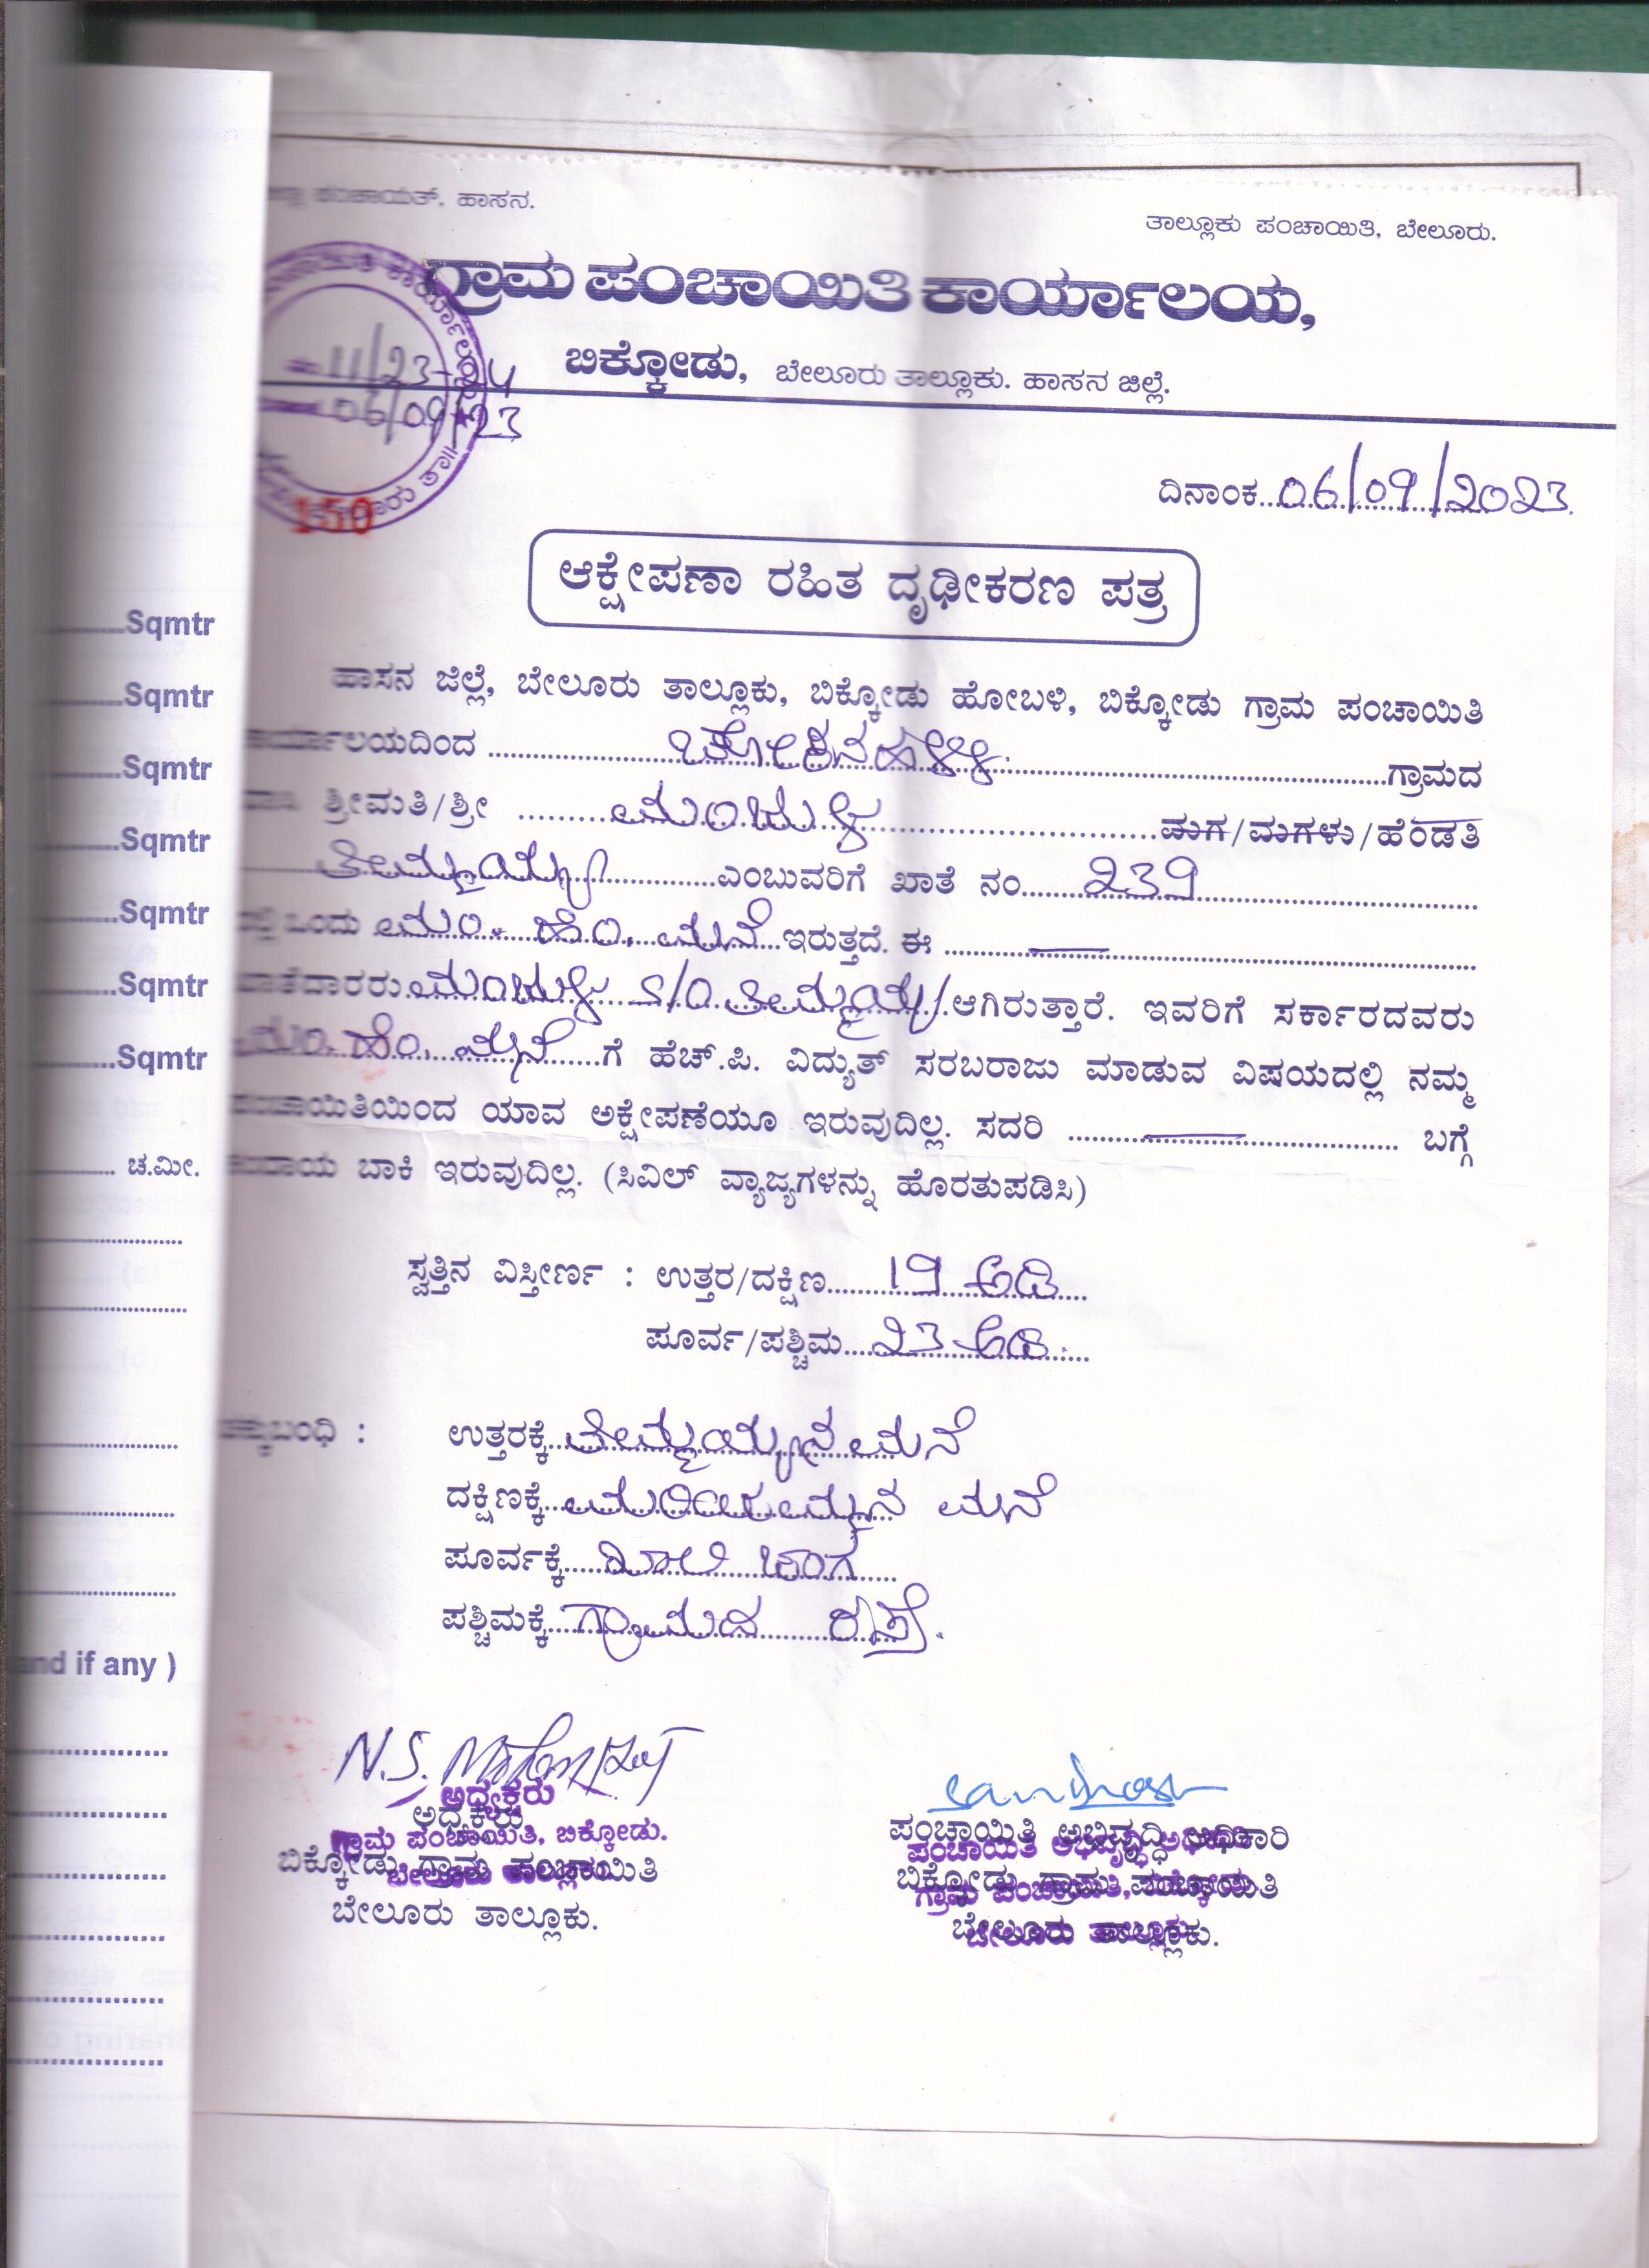 ಪಂಚಾಯತ್. ಹಾಸನ.
ತಾಲ್ಲೂಕು ಪಂಚಾಯಿತಿ, ಬೇಲೂರು.
ಗ್ರಾಮ ಪಂಚಾಯಿತಿ ಕಾರ್ಯಾಲಯ,
ಬಿಕ್ಕೋಡು, ಬೇಲೂರು ತಾಲ್ಲೂಕು. ಹಾಸನ ಜಿಲ್ಲೆ.
11/23-24
06/09/23
150
ದಿನಾಂಕ...06/09/2023.
ಆಕ್ಷೇಪಣಾ ರಹಿತ ದೃಢೀಕರಣ ಪತ್ರ
ಹಾಸನ ಜಿಲ್ಲೆ, ಬೇಲೂರು ತಾಲ್ಲೂಕು, ಬಿಕ್ಕೋಡು ಹೋಬಳಿ, ಬಿಕ್ಕೋಡು ಗ್ರಾಮ ಪಂಚಾಯಿತಿ
ಕಾರ್ಯಾಲಯದಿಂದ ........ ಗ್ರಾಮದ
ವಾಸಿ ಶ್ರೀಮತಿ/ಶ್ರೀ ........ಮಂಜುಳ........ಮಗ/ಮಗಳು/ಹೆಂಡತಿ
ತಿಮ್ಮಯ್ಯ........ಎಂಬುವರಿಗೆ ಖಾತೆ ನಂ......239
ಒಂದು ಮಂ. ಹೆಂ. ಮನೆ...ಇರುತ್ತದೆ. ಈ ........
ಖಾತೆದಾರರು.ಮಂಜುಳ S/O ತಿಮ್ಮಯ್ಯ.ಆಗಿರುತ್ತಾರೆ. ಇವರಿಗೆ ಸರ್ಕಾರದವರು
ಮಂ. ಹೆಂ. ಮನೆ......ಗೆ ಹೆಚ್.ಪಿ. ವಿದ್ಯುತ್ ಸರಬರಾಜು ಮಾಡುವ ವಿಷಯದಲ್ಲಿ ನಮ್ಮ
ಪಂಚಾಯಿತಿಯಿಂದ ಯಾವ ಅಕ್ಷೇಪಣೆಯೂ ಇರುವುದಿಲ್ಲ. ಸದರಿ ........ ಬಗ್ಗೆ
ಕಂದಾಯ ಬಾಕಿ ಇರುವುದಿಲ್ಲ. (ಸಿವಿಲ್ ವ್ಯಾಜ್ಯಗಳನ್ನು ಹೊರತುಪಡಿಸಿ)
ಸ್ವತ್ತಿನ ವಿಸ್ತೀರ್ಣ : ಉತ್ತರ/ದಕ್ಷಿಣ......19 ಅಡಿ
ಪೂರ್ವ/ಪಶ್ಚಿಮ....23 ಅಡಿ.
ಚಕ್ಕುಬಂಧಿ : ಉತ್ತರಕ್ಕೆ..ತಿಮ್ಮಯ್ಯನ ಮನೆ
ದಕ್ಷಿಣಕ್ಕೆ.. ಮನೆ
ಪೂರ್ವಕ್ಕೆ.....ಖಾಲಿ ಜಾಗ
ಪಶ್ಚಿಮಕ್ಕೆ..ಗ್ರಾಮದ ರಸ್ತೆ.
ಅಧ್ಯಕ್ಷರು
ಅಧ್ಯಕ್ಷರು
ಗ್ರಾಮ ಪಂಚಾಯಿತಿ, ಬಿಕ್ಕೋಡು.
ಬಿಕ್ಕೋಡು ಗ್ರಾಮ ಪಂಚಾಯಿತಿ
ಬೇಲೂರು ತಾಲ್ಲೂಕು.
ಪಂಚಾಯಿತಿ ಅಭಿವೃದ್ಧಿ ಅಧಿಕಾರಿ
ಬಿಕ್ಕೋಡು ಗ್ರಾಮ ಪಂಚಾಯಿತಿ
ಬೇಲೂರು ತಾಲ್ಲೂಕು.
Sqmtr
Sqmtr
Sqmtr
Sqmtr
Sqmtr
Sqmtr
Sqmtr
ಚ.ಮೀ.
and if any )